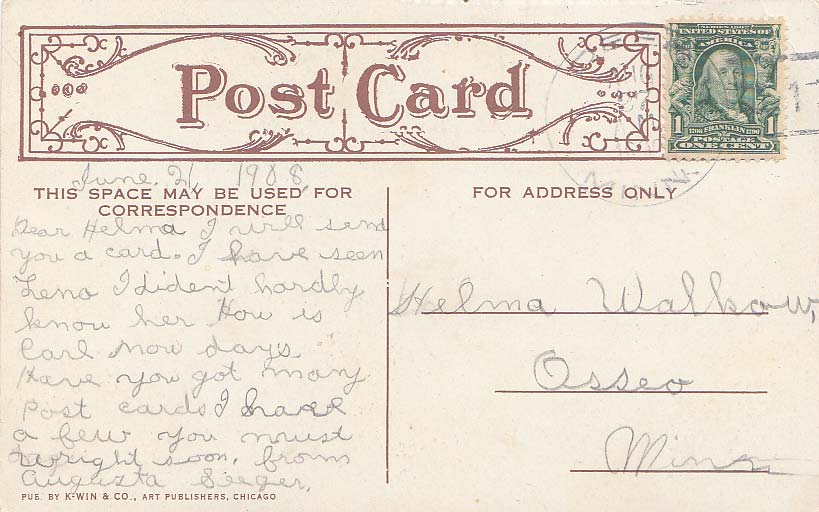 Post Card
SERIES 1902
UNITED STATES OF
AMERICA
1706 FRANKLIN 1790
1 POSTAGE 1
ONE CENT
June. 21, 1908,
THIS SPACE MAY BE USED FOR
CORRESPONDENCE
FOR ADDRESS ONLY
Dear Helma I will send
you a card. I have seen
Lena I dident hardly
know her How is
Carl now days.
Have you got many
Post cards I have
a few you must
wright soon. from
Augusta Seeger,
Helma Walkow,
Osseo
Minn
PUB. BY K-WIN & CO., ART PUBLISHERS, CHICAGO